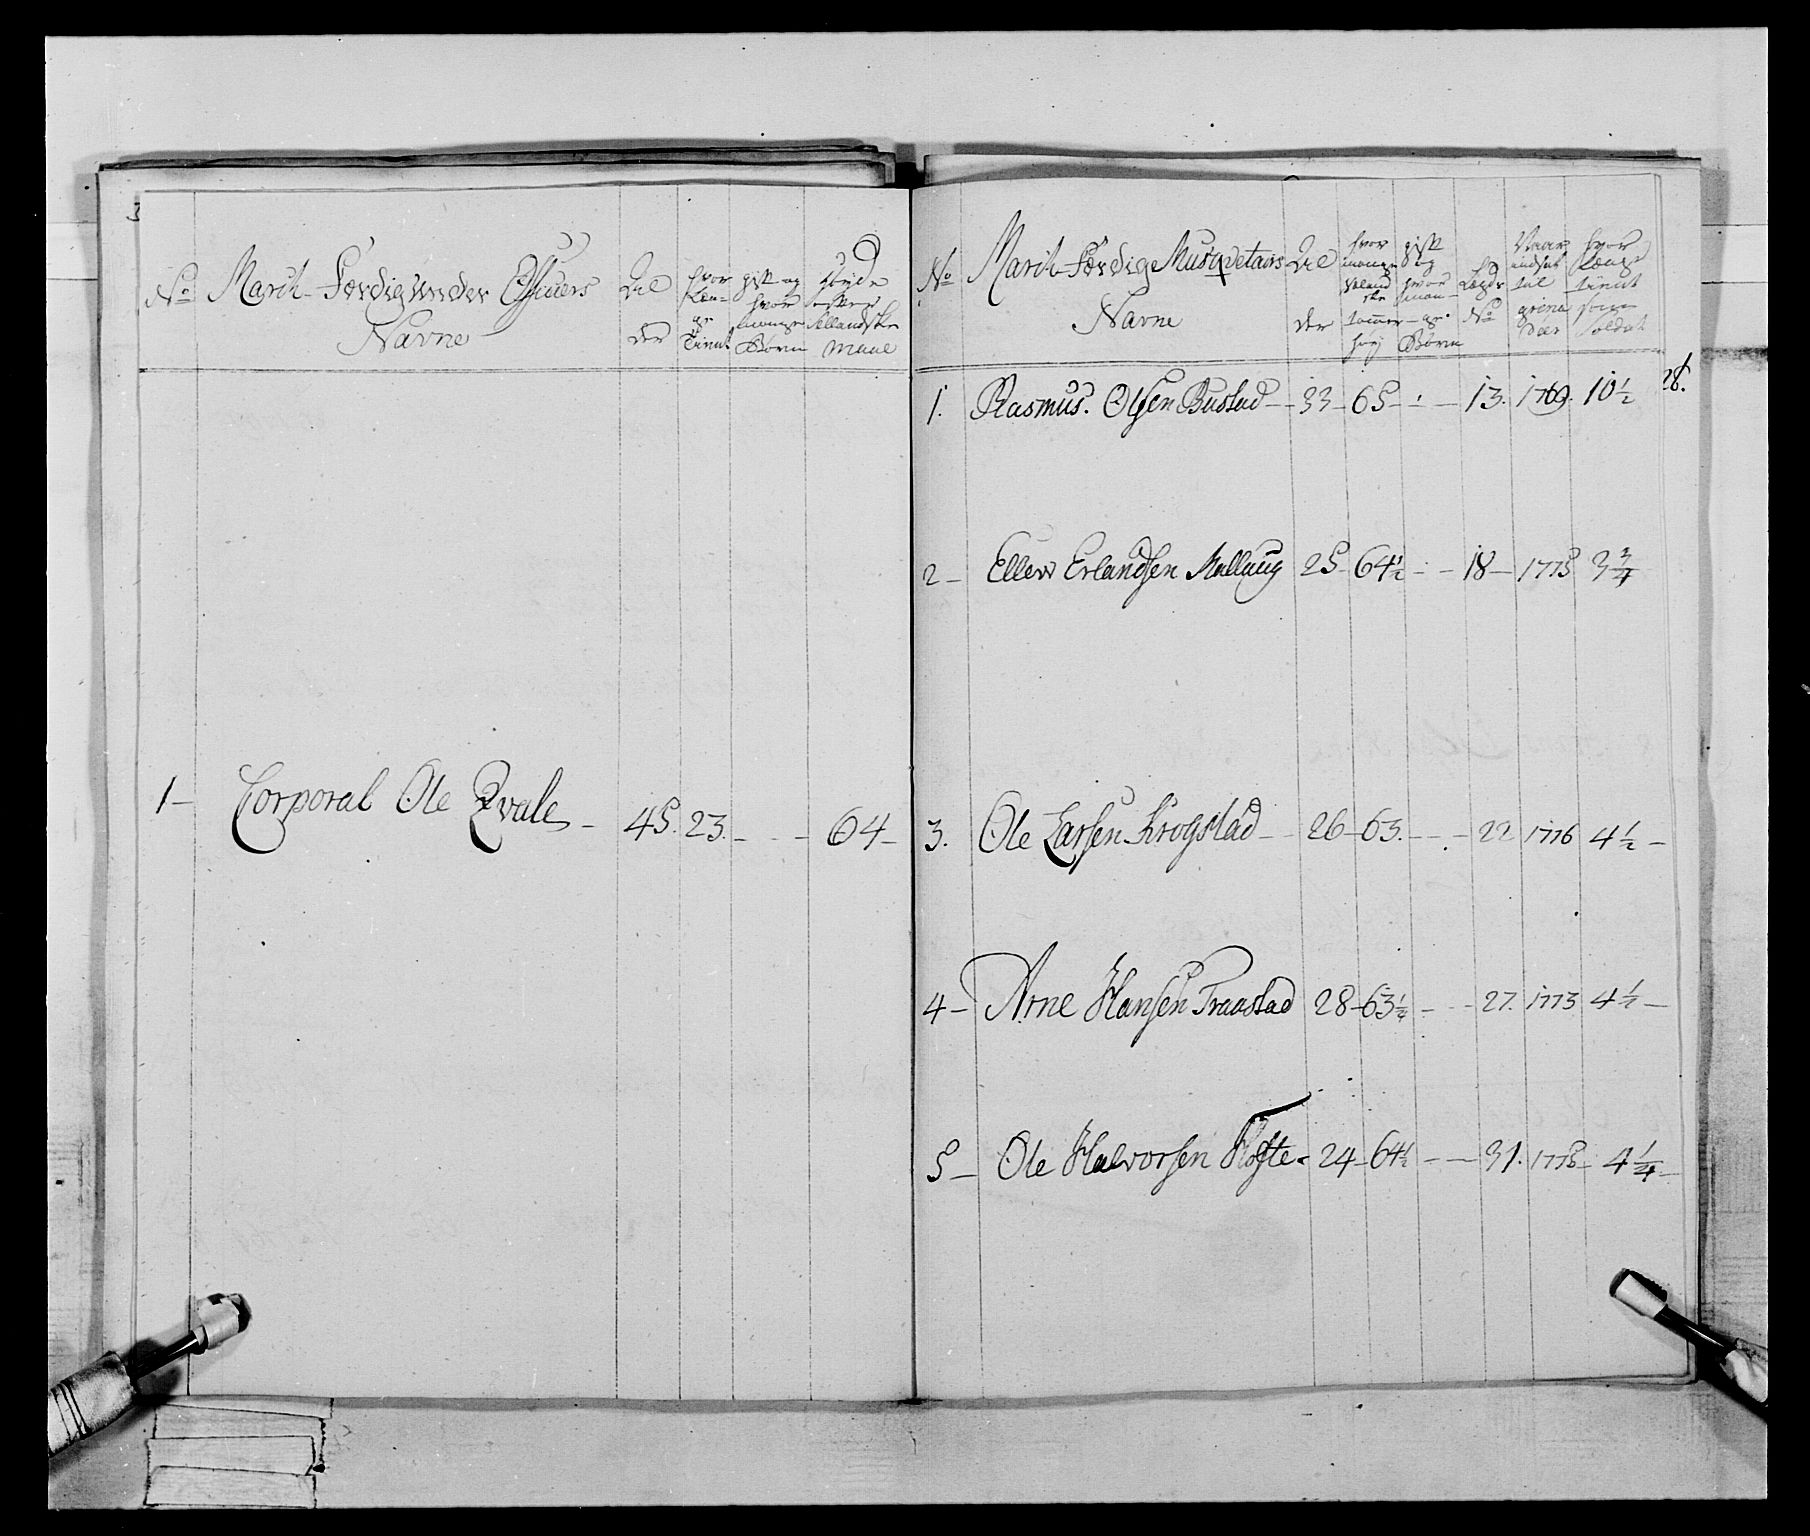 No
Marit Færdig Under Officiers
Navne
Al
der
hvor
Læn-
ge
Tient
gift og
hvor
mange
Børn
Høyde
efter
Sellandske
Maal
1 — Corporal Ole Qvale — 45. 23. — - - — 64 —
No
Marit Færdige Musqvetairs
Navne
Al
der
hvor
mange
Sæland
ske
tommer
høj
gift
og
hvor
man-
ge
Børn
Lægds
No
Naar
indsat
til
grena
deer
hvor
længe
tient
som
soldat
28.
1. Rasmus. Olsen Bustad — 33 — 65 — - — 13. 1769. 10 1/2
2 — Ellew Erlandsen Mellaug 25 — 64 1/2 - — 18 — 1775 3 3/4
3. Ole Larsen Krogstad — 26 — 63. — - — 22 1776 4 1/2 —
4 — Arne Hansen Traastad 28 — 63 1/4 — - - 27. 1773 4 1/2 —
5 — Ole Halvorsen Tofte — 24 — 64 1/2 — — 31. 1775 — 4 1/4 —